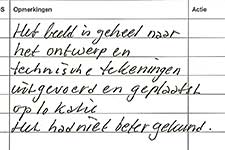 S Opmerkingen Actie
Het beeld is geheel naar
het ontwerp en
technische tekeningen
uitgevoerd en geplaatst
op lokatie
Het had niet beter gekund.